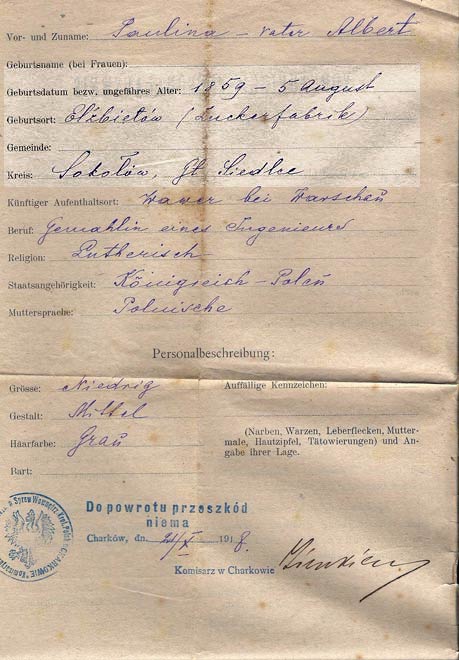 Vor- und Zuname: Paulina – vater Albert
Geburtsname (bei Frauen):
Geburtsdatum bezw. ungefähres Alter: 1859 – 5 August
Geburtsort: Elżbietów (Zuckerfabrik)
Gemeinde:
Kreis: Sokołów, Gt Siedlce
Künftiger Aufenthaltsort: Wawer bei Warschau
Beruf: Gemahlin eines Ingenieurs
Religion: Lutherisch
Staatsangehörigkeit: Königreich – Polen
Muttersprache: Polnische
Personalbeschreibung:
Grösse: Niedrig
Gestalt: Mittel
Haarfarbe: Grau
Bart:
Auffällige Kennzeichen:
(Narben, Warzen, Leberflecken, Mutter-
male, Hautzipfel, Tätowierungen) und An-
gabe ihrer Lage.
Do powrotu przeszkód
niema
Charków, dn. 21/X 1918.
Komisarz w Charkowie